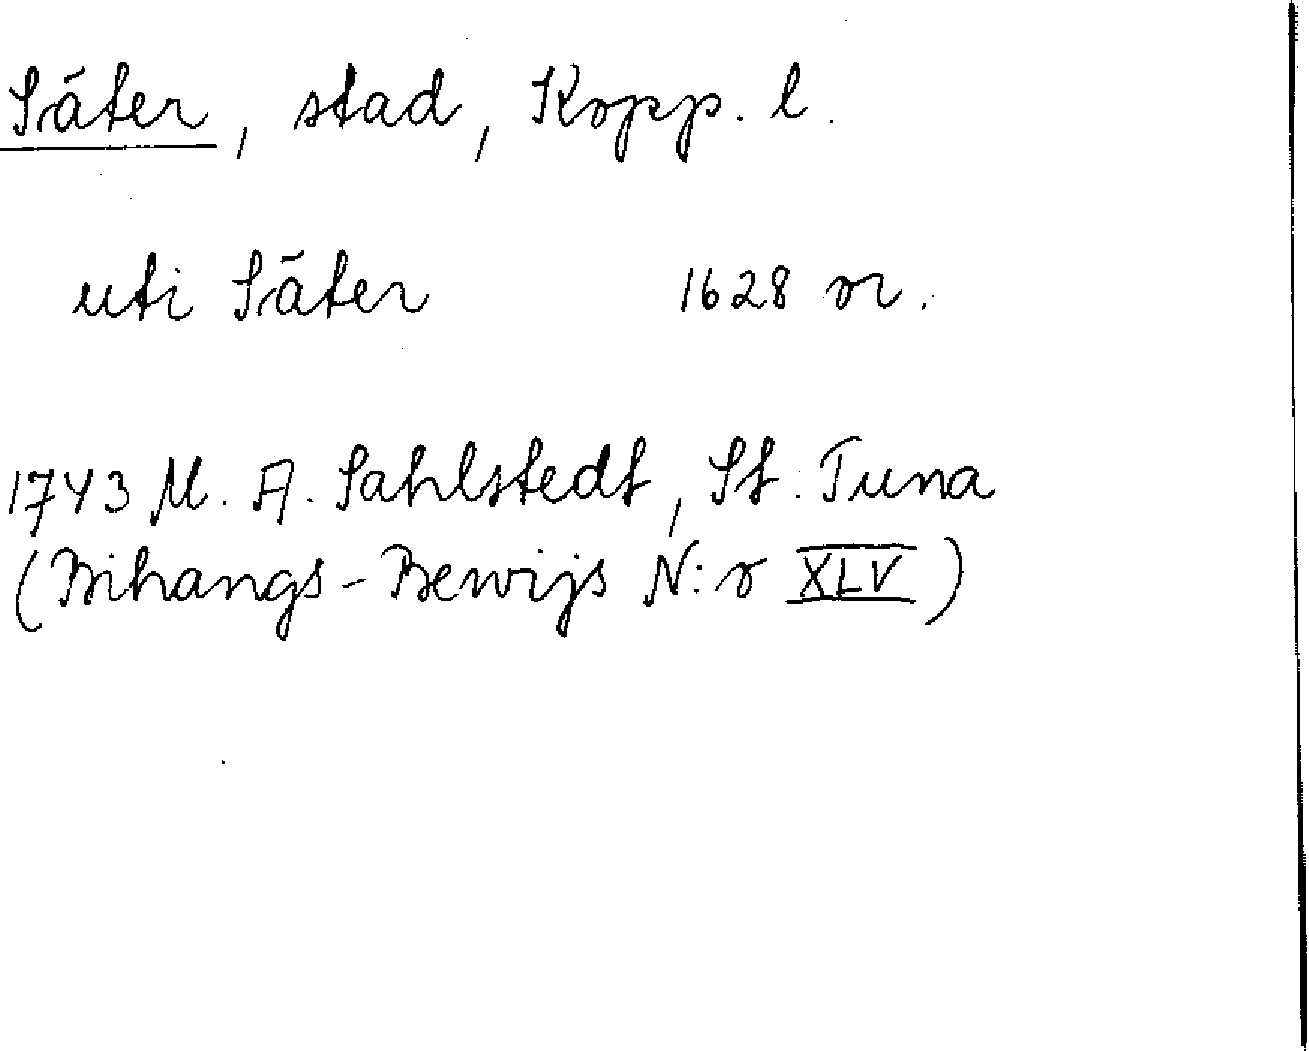 Säter, stad, Kopp. l.
uti Säter 1628 or.
1743 M. A. Sahlstedt, St. Tuna
(Bihangs-Bewijs N:r XLV)